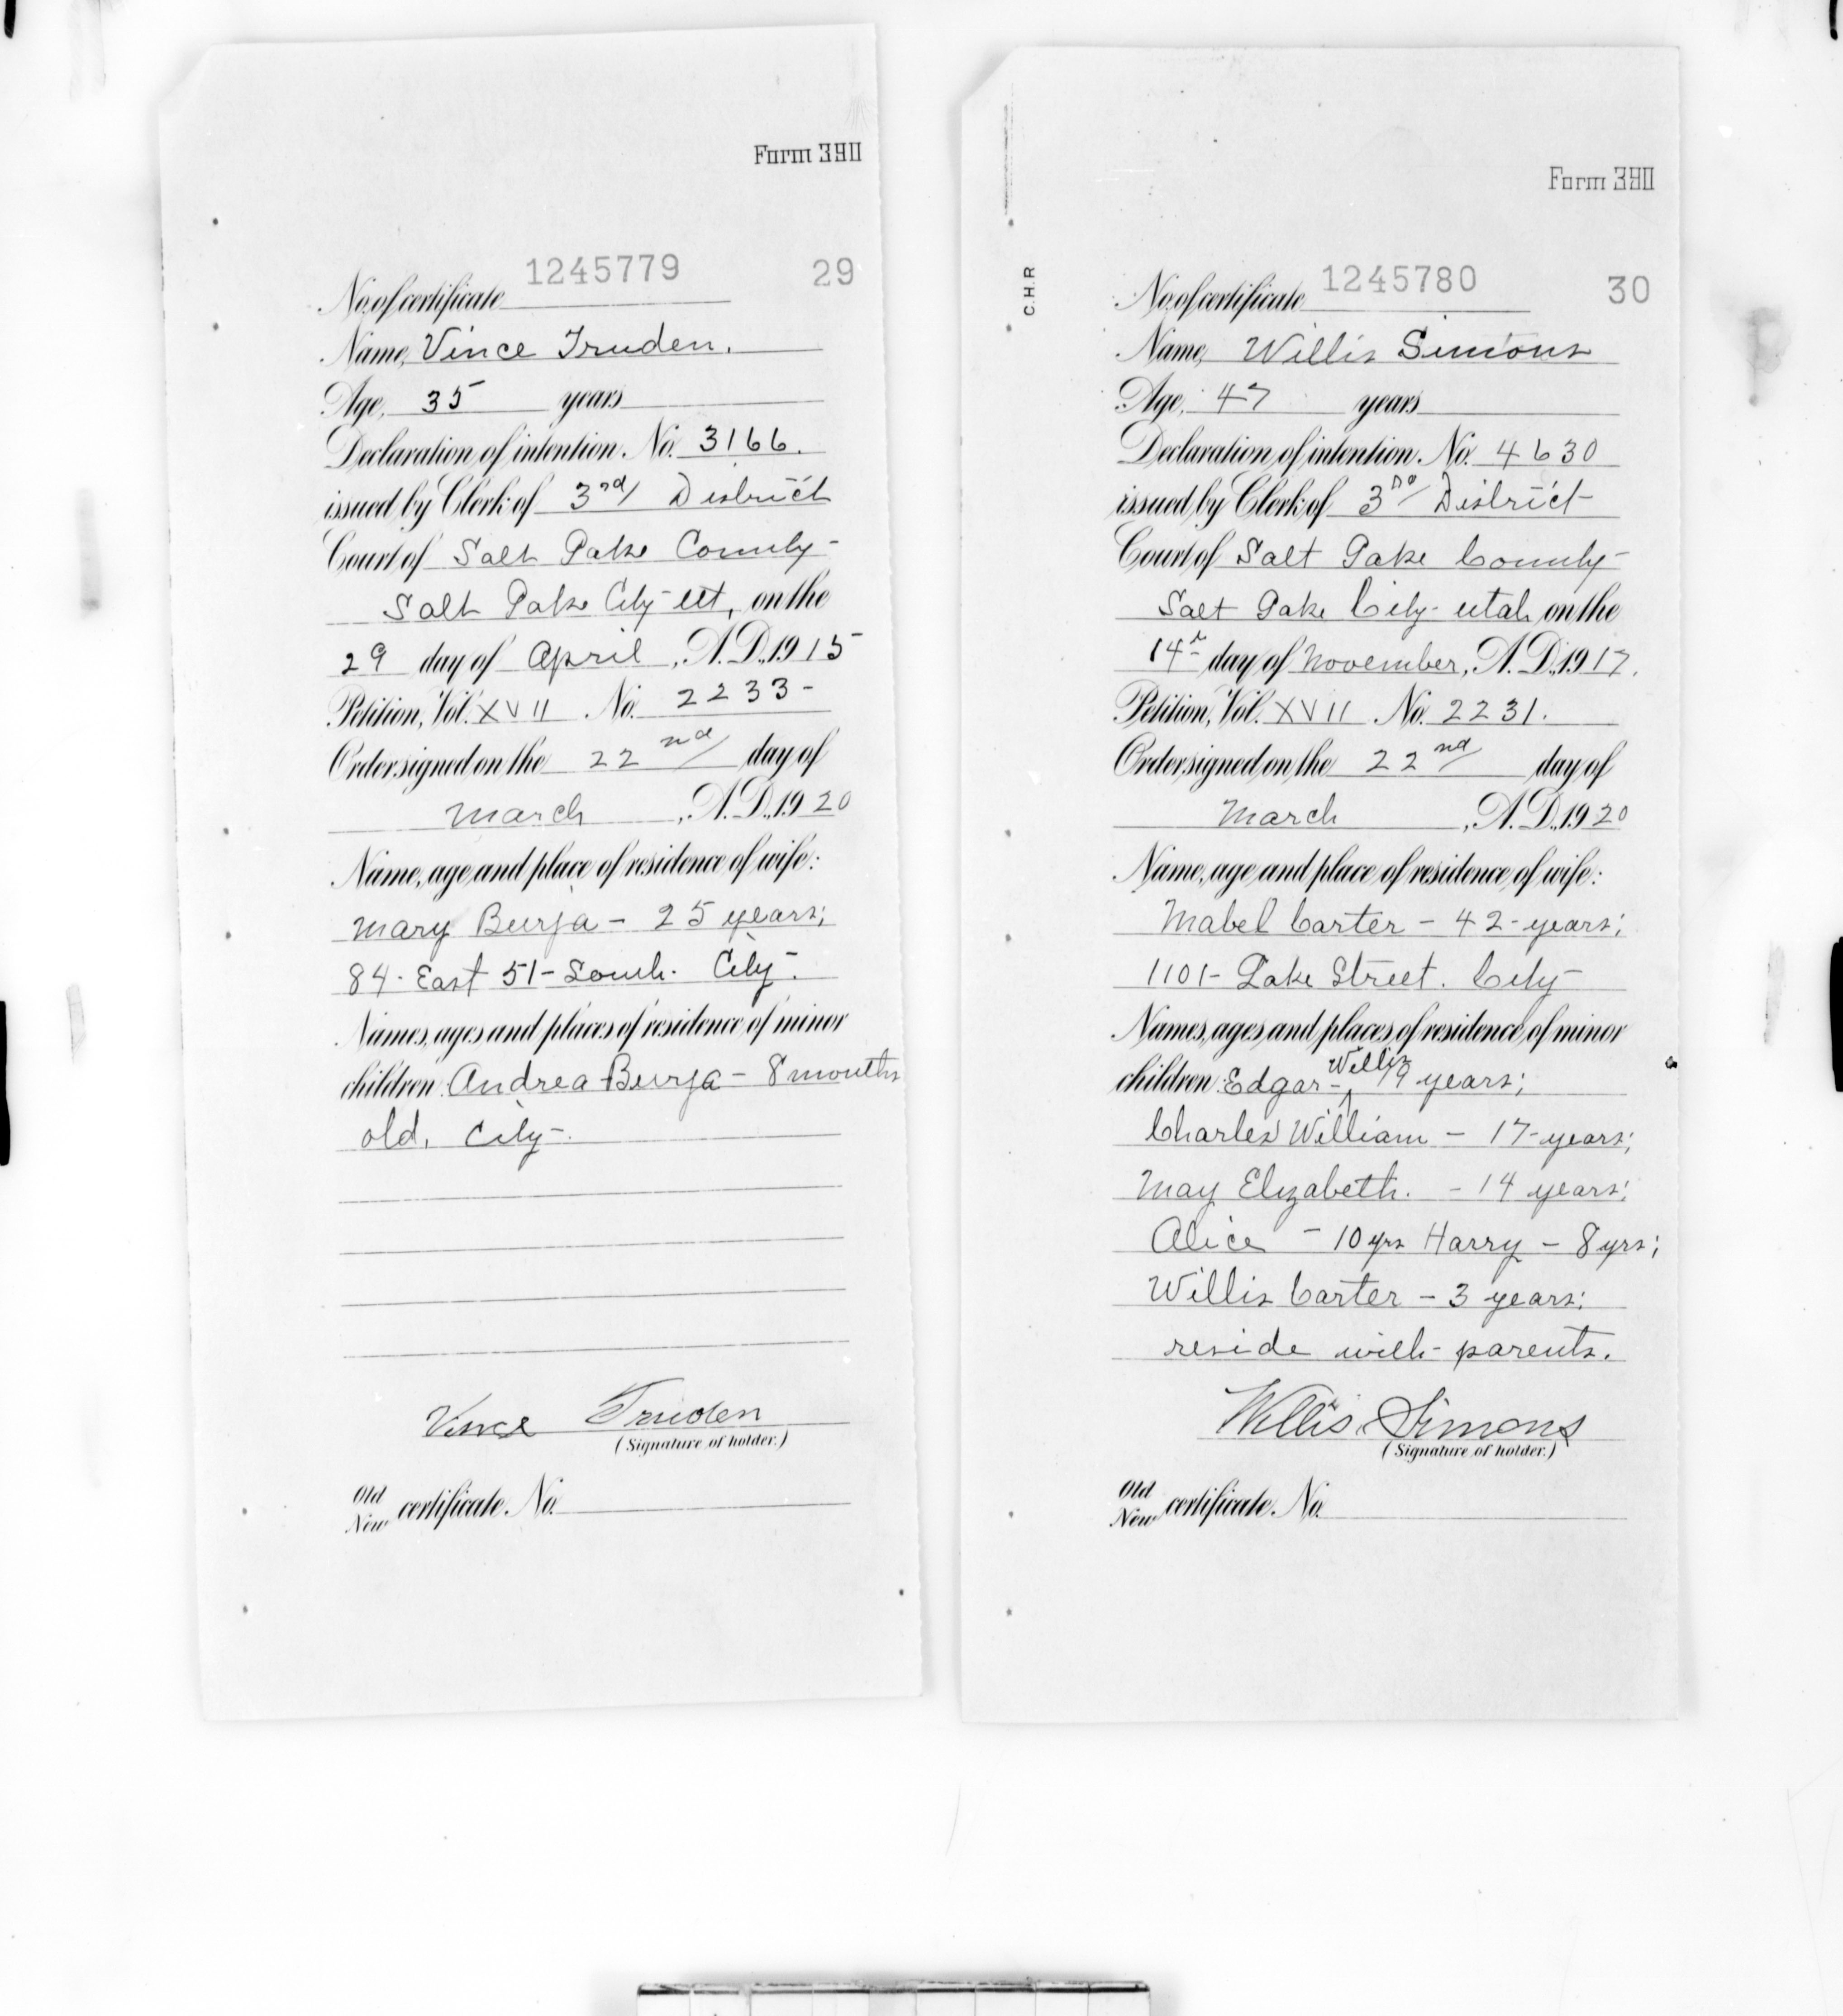 Form 390
1245779 29
No. of certificate
Name, Vince Truden.
Age, 35 years
Declaration of intention. No. 3166.
issued by Clerk of 3rd District
Court of Salt Lake County-
Salt Lake City-Ut, on the
29 day of April, A.D. 1915
Petition, Vol. XVII No. 2233-
Order signed on the 22nd day of
March, A.D. 1920
Name, age and place of residence of wife:
Mary Burja - 25 years;
84- East 51- South- City-.
Names, ages and places of residence of minor
children Andrea Burja - 8 months
old. City-.
Vince Truden
(Signature of holder.)
Old
New certificate. No.
Form 390
C.H.R
1245780 30
No. of certificate
Name, Willis Simons
Age, 47 years
Declaration of intention. No. 4630
issued by Clerk of 3rd District
Court of Salt Lake County-
Salt Lake City- Utah on the
14th day of November, A.D. 1917.
Petition, Vol. XVII No. 2231.
Order signed on the 22nd day of
March, A.D. 1920
Name, age and place of residence of wife:
Mabel Carter - 42-years;
1101- Lake Street. City-
Names, ages and places of residence of minor
Willis
children Edgar - 19 years;
Charles William - 17-years;
May Elizabeth. - 14 years;
Alice - 10 yrs Harry - 8 yrs;
Willis Carter - 3 years;
reside with- parents.
Willis Simons
(Signature of holder.)
Old
New certificate. No.